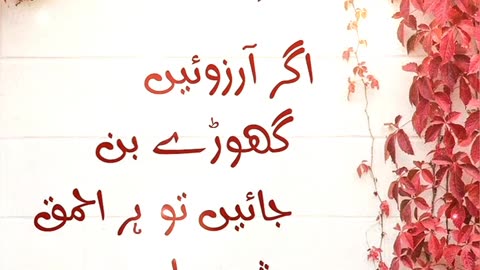 اگر آرزوئیں
گھوڑے بن
جائیں تو ہر احمق